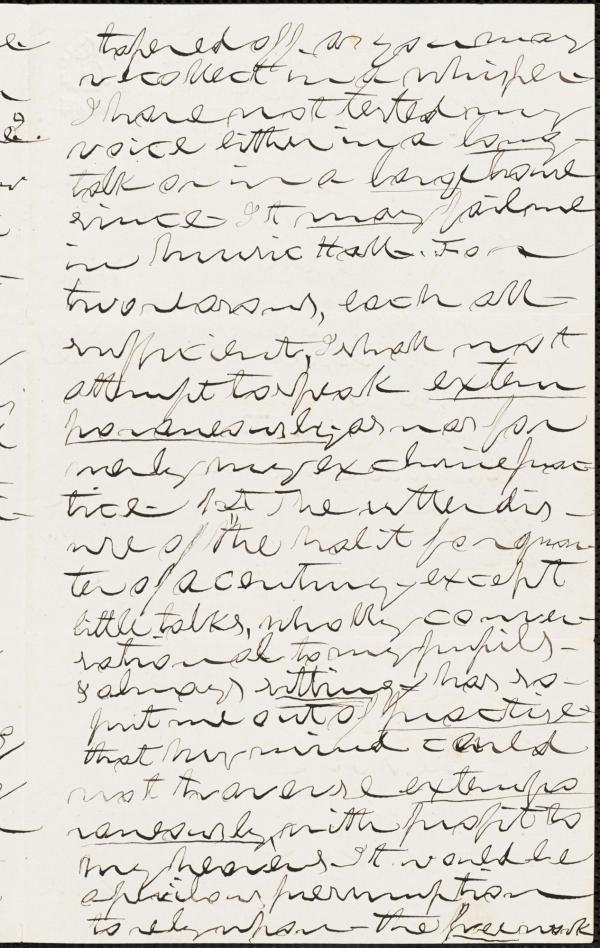 tapered off, as you may
recollect in a whisper
I have not tested my
voice either in a long
talk or in a large house
since - It may fail me
in Music Hall. For
two reasons, each all-
sufficient, I shall not
attempt to speak extem
poraneously, as was for
merly my exclusive prac
tice - 1st The utter dis-
use of the habit for quar-
ter of a century - except
little talks, wholly conver-
sational to my pupils -
& always sitting - has so
put me out of practise
that my mind could
not traverse extempo
raneously, with profit to
my hearers. It would be
a perilous presumption
to rely upon - the free work